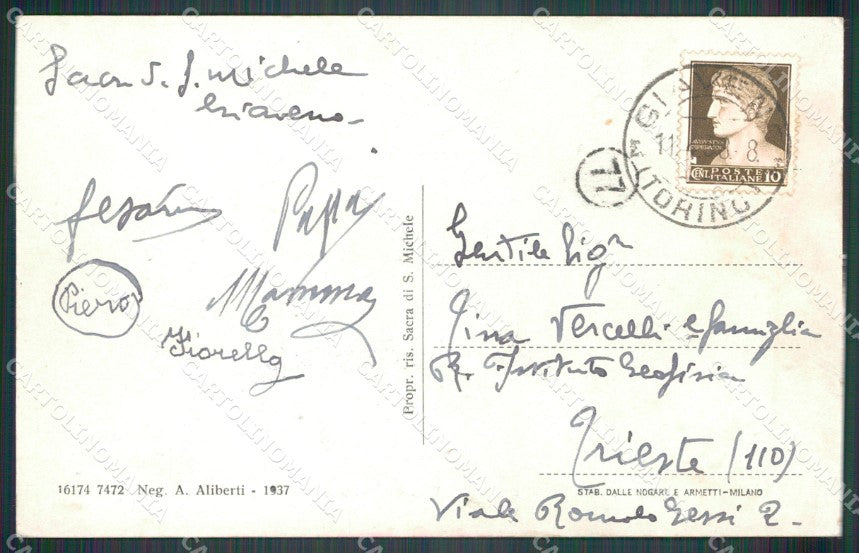 Sacra S. Michele
Giaveno
Cesarina
Papà
Mamma
Piero
Fiorella
Propr. ris. Sacra di S. Michele
16174 7472 Neg. A. Aliberti - 1937
GIAVENO
8.
(TORINO)
77
AUGUSTUS
IMPERATOR
CENT. POSTE ITALIANE 10
Gentile Sigra
Vercelli e famiglia
R. Istituto Geofisico
Trieste (110)
STAB. DALLE NOGARE E ARMETTI-MILANO
Viale Romolo Gessi 2.
CARTOLINOMANIA